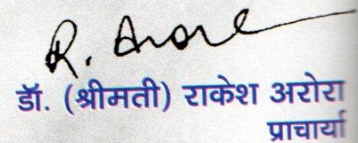 R. Arora
डॉ. (श्रीमती) राकेश अरोरा
प्राचार्या